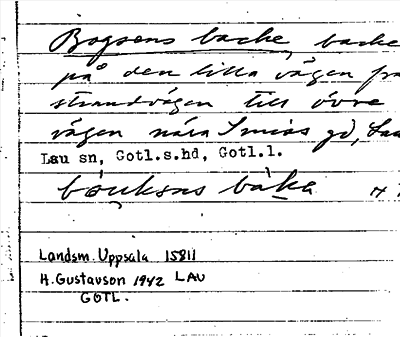 Bogsens backe, backe
på den lilla vägen fra
strandvägen till övre
vägen nära Smiss gd, Lau
Lau sn, Gotl.s.hd, Gotl.l.
båuksns bakа
Landsm. Uppsala 15811
H. Gustavson 1942 LAU
GOTL.